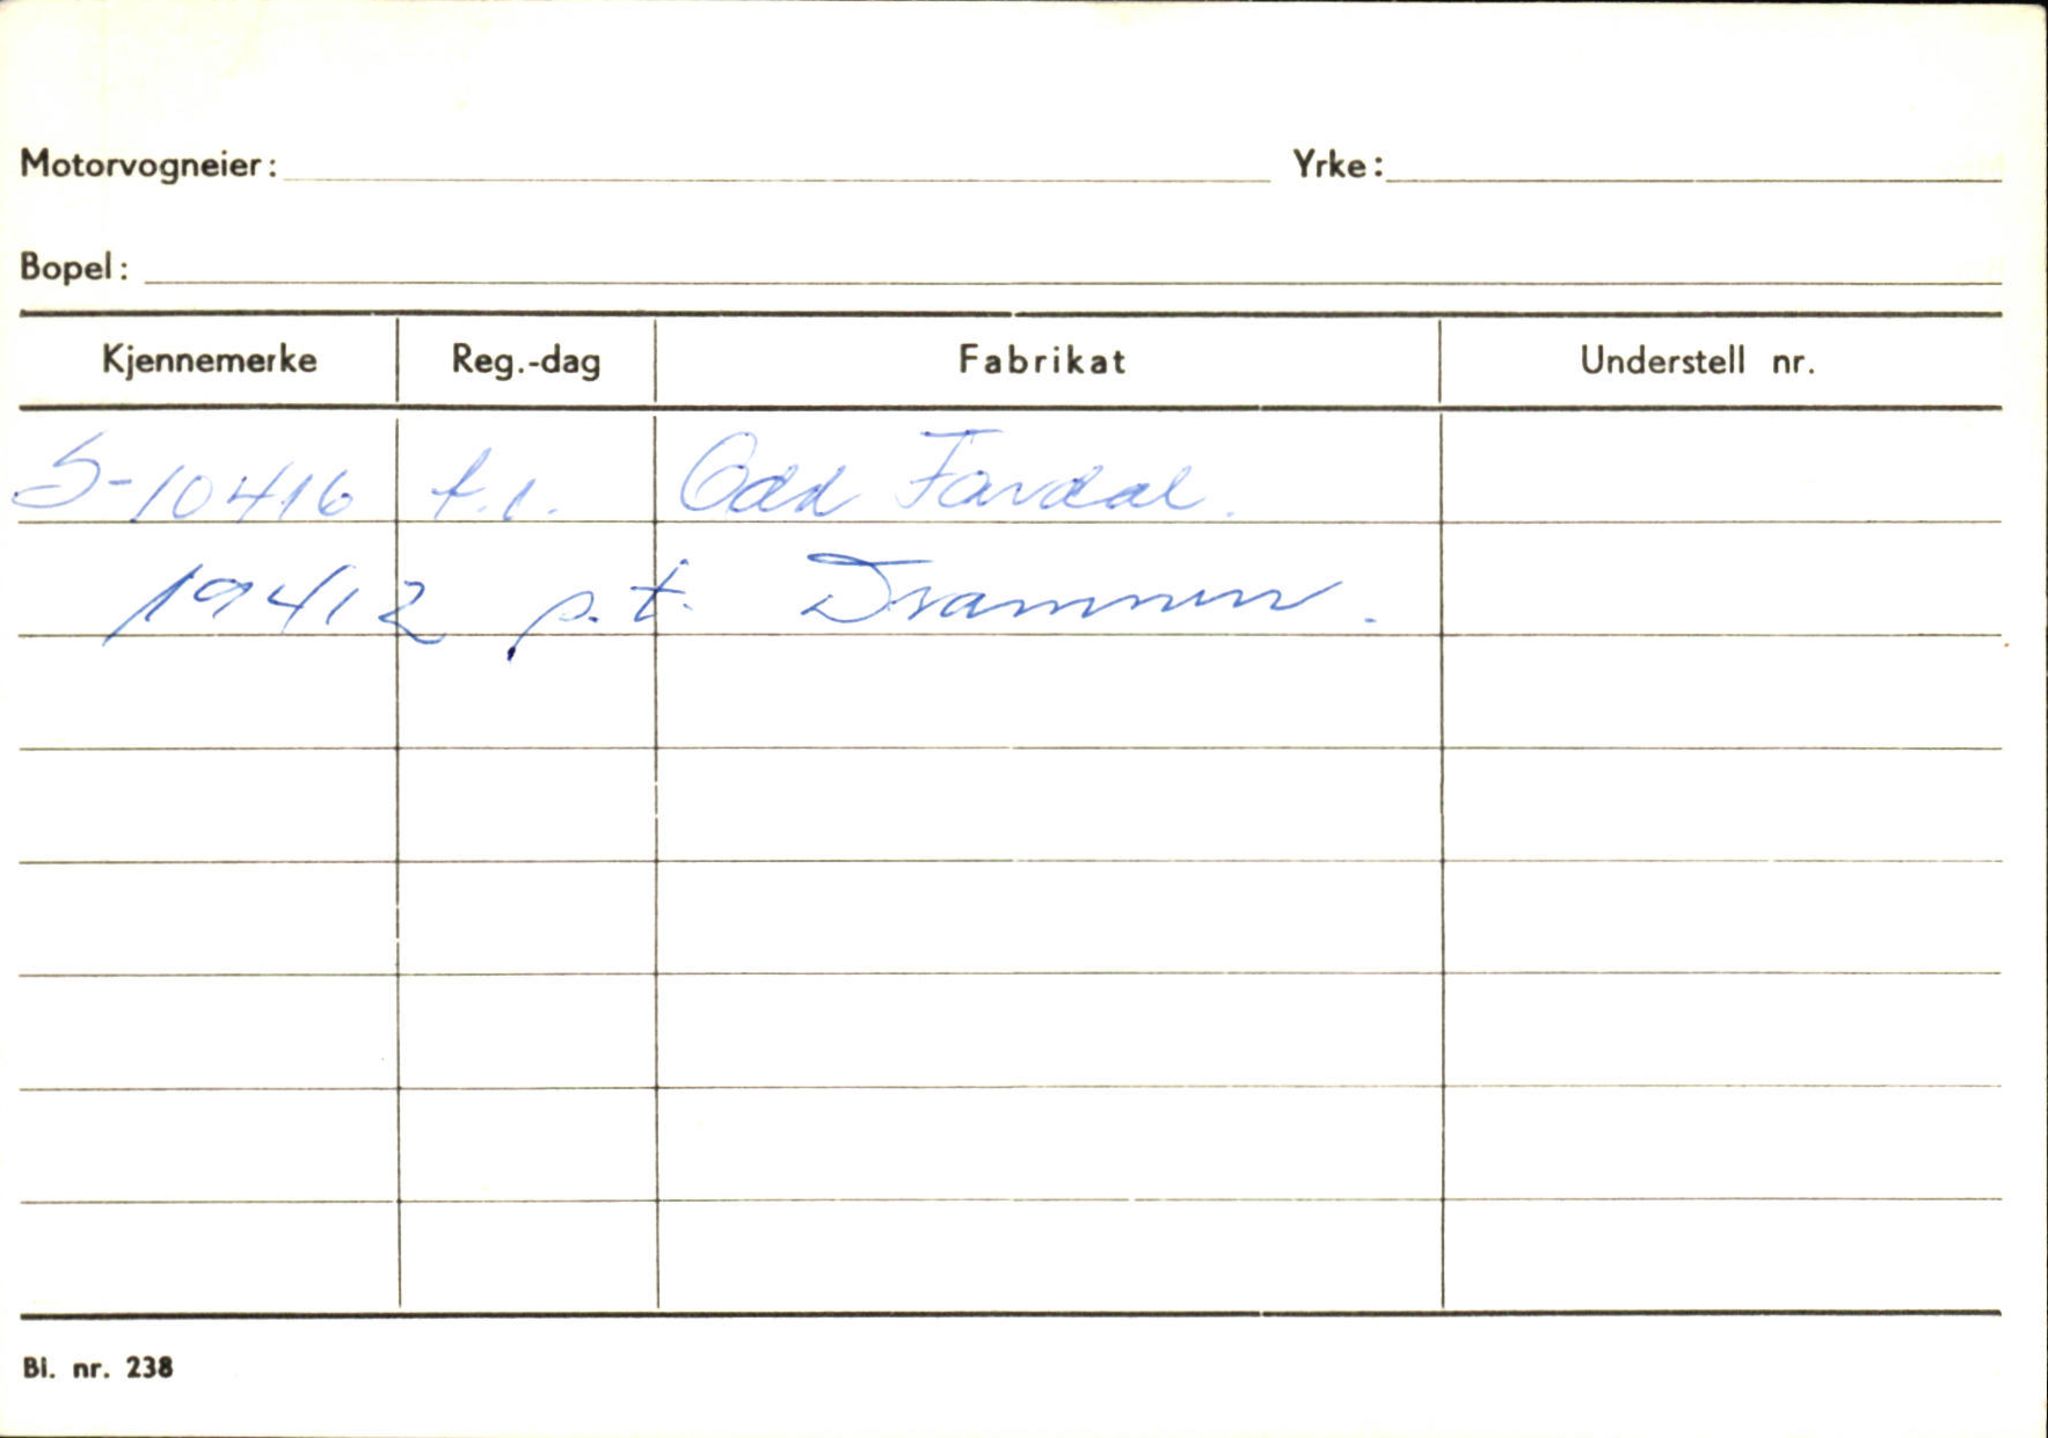 Motorvogneier: Yrke:
Bopel:
Kjennemerke Reg.-dag Fabrikat Understell nr.
S-10416 t.l. Odd Fardal.
19412 p.t. Drammen.
Bl. nr. 238